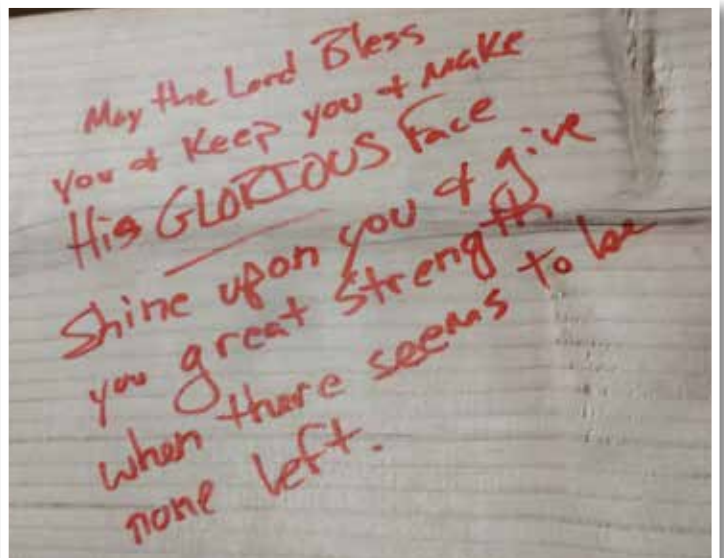 May the Lord Bless
you & Keep you & Make
His GLORIOUS Face
Shine upon you & give
you great strength
when there seems to be
none left.